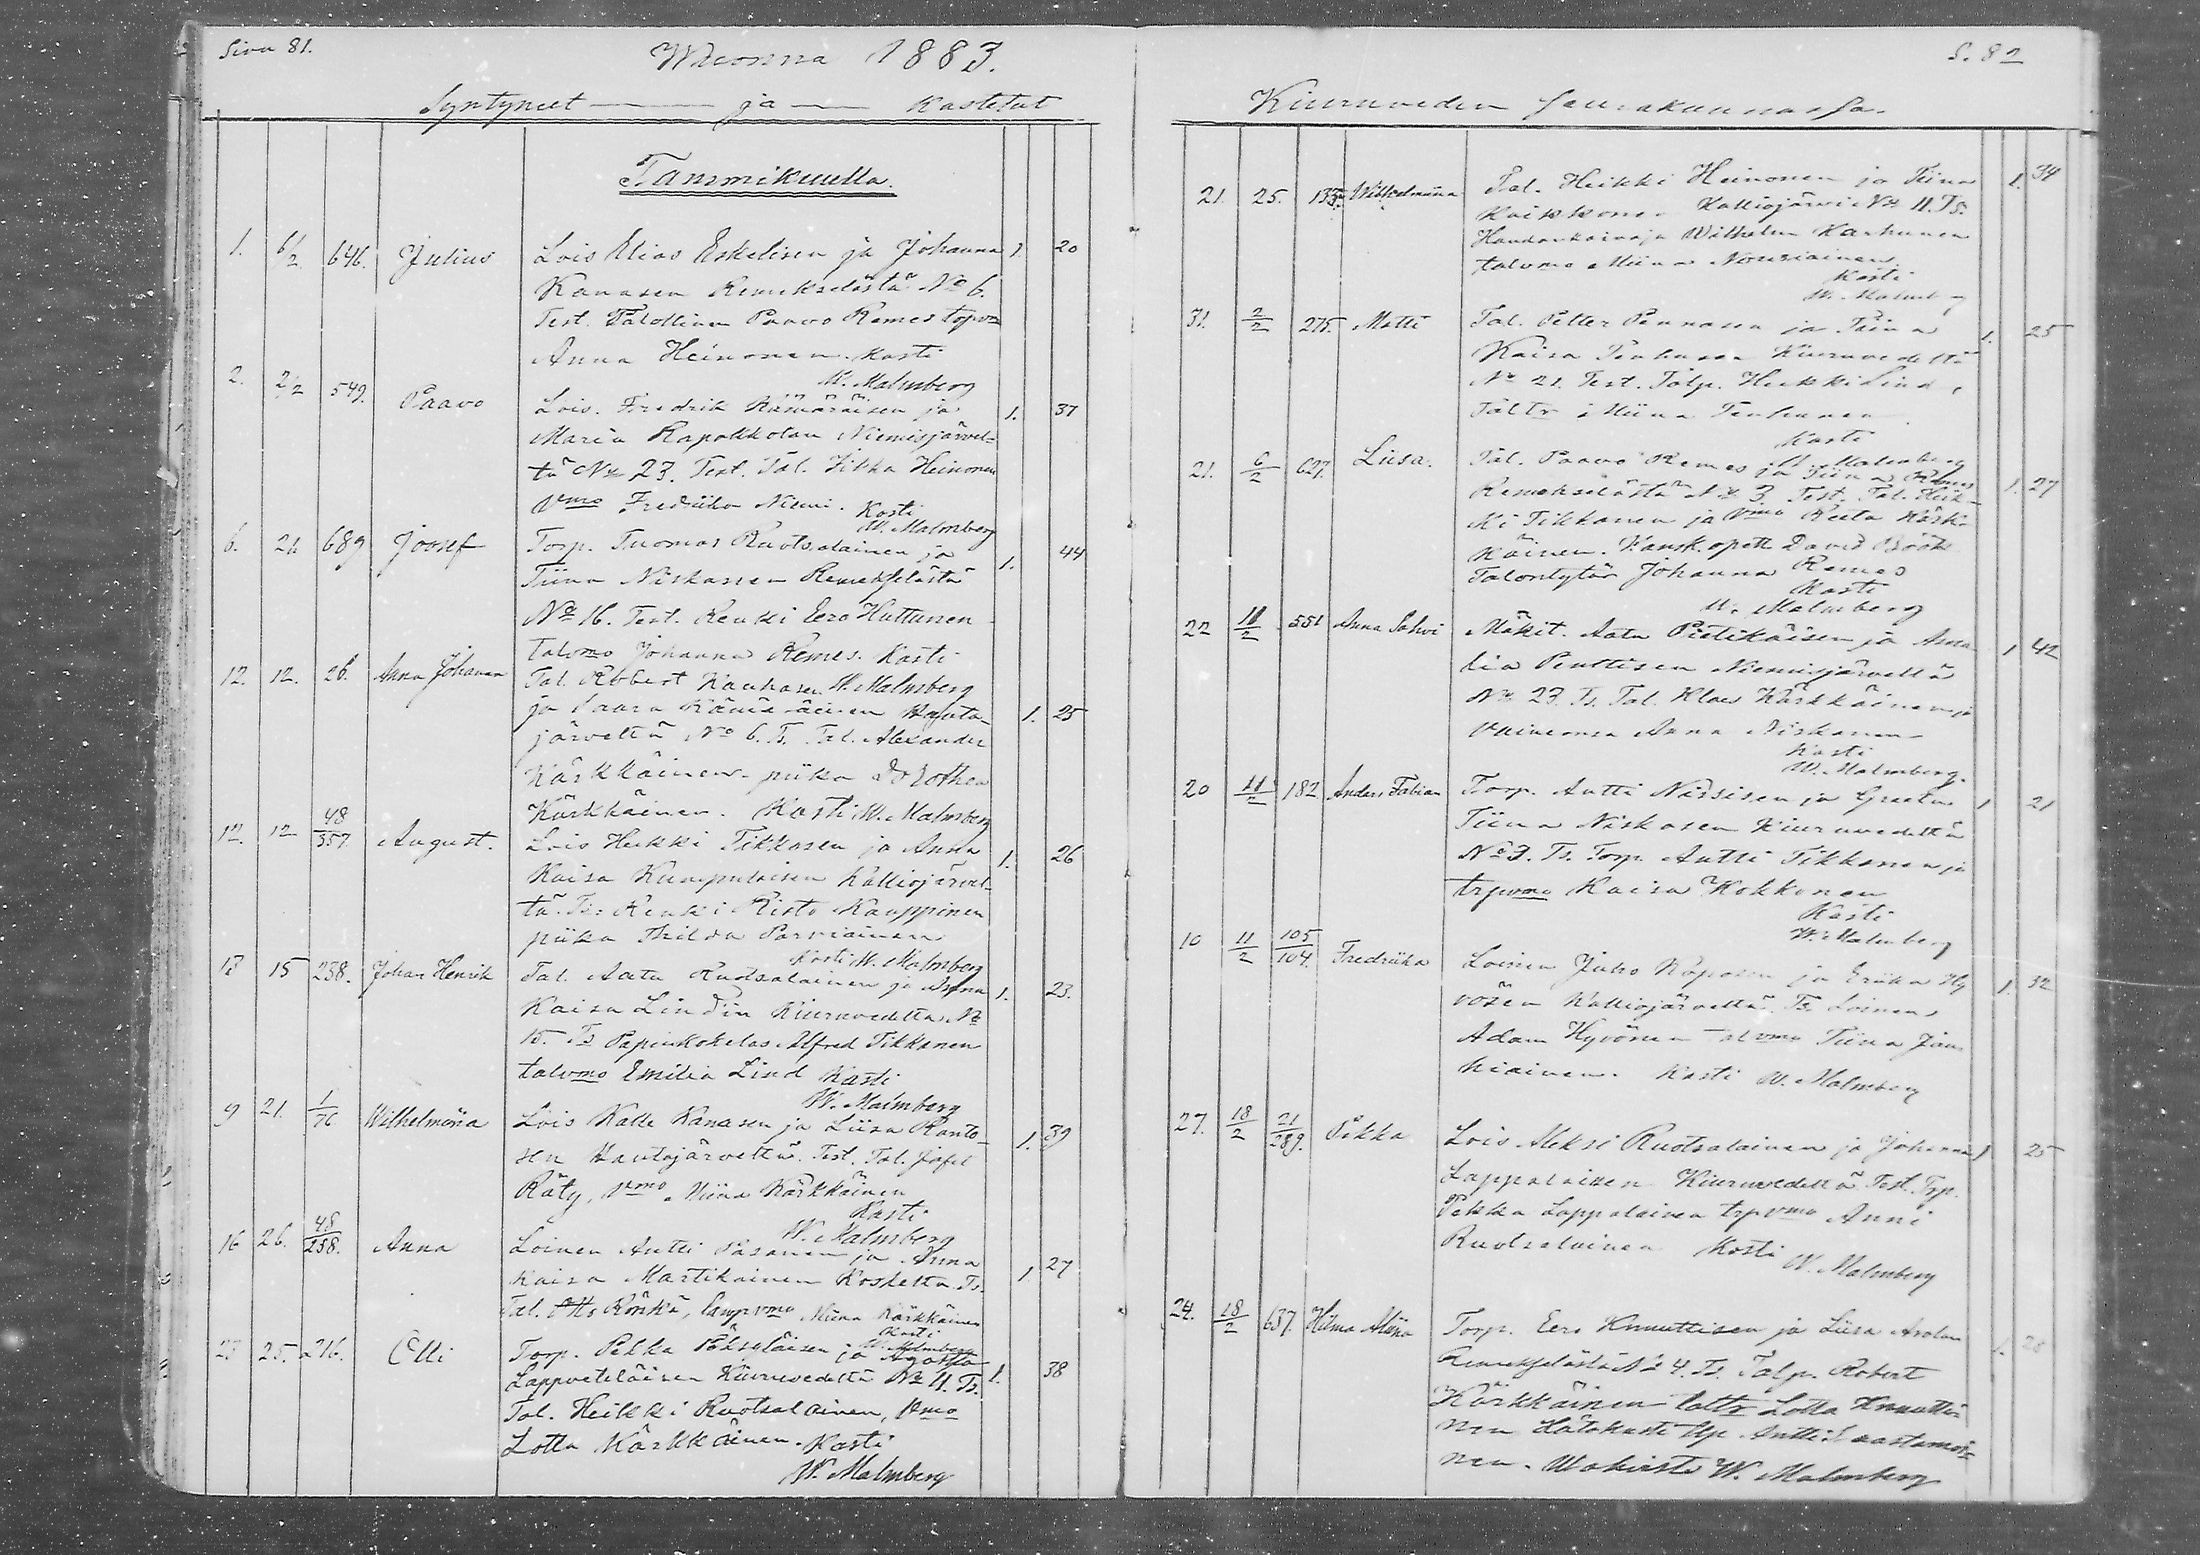 Sivu 81.
Wuonna 1883.
Syntyneet — ja — Kastetut
Tammikuulla.
1. 6/2 646. Julius Lois Elias Eskelisen ja Johanna 1 20
Kanasen Remekselästä No 6.
Test. Talollinen Paavo Remes torpvmo
Anna Heinonen. Kasti
W. Malmberg
2. 2/2 549. Paavo Lois. Fredrik Kämäräisen ja 1. 37
Maria Rapakkolan Niemisjärvel-
tä No 23. Test. Tal. Pekka Heinonen
Vmo Fredriika Niemi. Kasti
W. Malmberg
6. 21. 689 Joosef Torp. Tuomas Ruotsalainen ja 1. 44
Tiina Niskasen Remekselästä
No 16. Test. Renki Eero Huttunen
talvmo Johanna Remes. Kasti
W. Malmberg
12. 12. 26. Anna Johanna Tal. Robert Kauhasen
ja Saara Hauta- 1. 25
järveltä No 6. Ts. Tal. Alexander
Kärkkäinen piika Dorothea
Kärkkäinen. Kasti W. Malmberg
12. 12 48/357. August. Lois Heikki Tikkasen ja Anna 1. 26
Kaisa Kumpulaisen Kalliojärvel-
tä. Ts: Renki Risto Kauppinen
piika Thilda Parviainen
Kasti W. Malmberg
13 15 238. Johan Henrik Tal. Aatu Ruotsalainen ja Anna 1. 23.
Kaisa Lindin Kiuruvedeltä No
15. Ts Papinkokelas Alfred Tikkanen
talvmo Emilia Lind Kasti
W. Malmberg
9 21. 1/76 Wilhelmiina Lois Kalle Kanasen ja Liisa Ranto- 1. 39
sen Hautajärveltä. Test. Tal. Josef
Räty, Vmo Miina Kärkkäinen
Kasti
W. Malmberg
16 26. 48/238. Anna Loinen Antti Pasanen ja Anna 1 27
Kaisa Martikainen Koskelta. Ts.
Tal. Otto Rönkä, lamp vmo Miina Kärkkäinen
Kasti
W. Malmberg
23 25. 216. Olli Torp. Pekka ja 1. 38
Lappveteläisen Kiuruvedeltä No 11. Ts.
Tal. Heikki Ruotsalainen, Vmo
Lotta Kärkkäinen. Kasti
W. Malmberg
S. 82
Kiuruveden seurakunnassa.
21. 25. 133. Wilhelmiina Tal. Heikki Heinonen ja Tiina 1. 34
Kaikkonen Kalliojärvi No 11. Ts.
Haudankaivaja Wilhelm Karhunen
talvmo Miina Nousiainen
Kasti
W. Malmberg
31. 2/2 275. Matti Tal. Petter Pennasen ja Tiina 1. 25
Kaisa Tenhusen Kiuruvedeltä
No 21. Test. Talp. Heikki Lind,
Taltr Miina Tenhunen
Kasti
W. Malmberg
21. 6/2 627. Liisa. Tal. Paavo Remes ja Tiina Remes 1. 27
Remekselästä No 3 Test. Tal. Heik-
ki Tikkanen ja Vmo Reeta Kärk-
käinen. Kansk. opett. David Böök
Talontytär Johanna Remes
Kasti
W. Malmberg
22 11/2 551 Anna Sohvi Mäkit. Aatu Pietikäisen ja Ama- 1 42
lia Penttisen Niemisjärveltä
No 23. Ts. Tal. Klaes Kärkkäinen ja
vaimonsa Anna Niskanen
Kasti
W. Malmberg.
20 11/2 182 Anders Fabian Torp. Antti Nissisen ja Greeta 1 21
Tiina Niskasen Kiuruvedeltä
No 3. Ts. Torp. Antti Tikkanen ja
trpvmo Kaisa Kokkonen
Kasti
W. Malmberg
10 11/2 105/104. Fredriika Loinen Juho Roposen ja Eriika Hy 1. 32
vösen Kalliojärveltä. Ts. Loinen
Adam Hyvönen talvmo Tiina Jau
hiainen. Kasti W. Malmberg
27. 18/2 21/289. Pekka Lois Aleksi Ruotsalainen ja Johanna 1 25
Lappalaisen Kiuruvedeltä. Test. Trp.
Pekka Lappalainen trpvmo Anni
Ruotsalainen Kasti
W. Malmberg
24. 18/2 637. Hilma Aliina Torp. Eero Knuuttisen ja Liisa 1. 28
Remekselästä No 4. Ts. Talp. Robert
Kärkkäinen taltr Lotta Knuutti-
nen Hätäkaste Antti Saastamoi-
nen. W. Malmberg